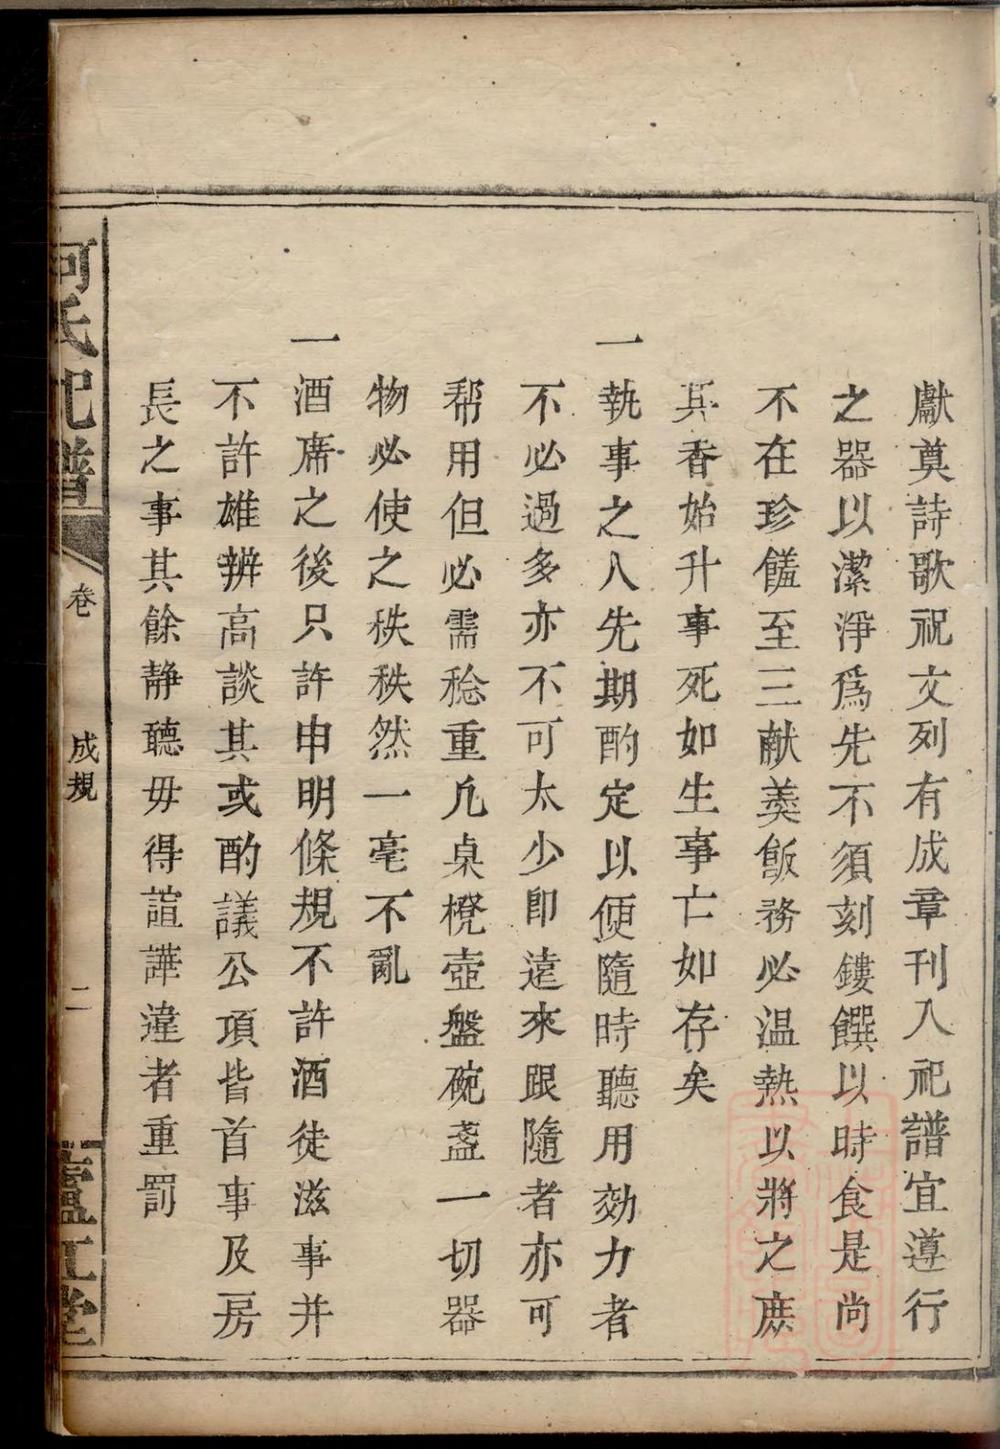 獻奠詩歌祝文列有成章刊入祀譜宜遵行
之器以潔淨爲先不須刻鏤饌以時食是尚
不在珍饈至三献羹飯務必温熱以將之庶
其香始升事死如生事亡如存矣
一執事之人先期酌定以便隨時聽用効力者
不必過多亦不可太少即遠來跟隨者亦可
帮用但必需稔重凢桌櫈壺盤碗盞一切器
物必使之秩秩然一毫不亂
一酒席之後只許申明條規不許酒徒滋事并
不許雄辨高談其或酌議公項皆首事及房
長之事其餘静聽毋得諠譁違者重罰
何氏祀譜
卷
成規
二
廬江堂